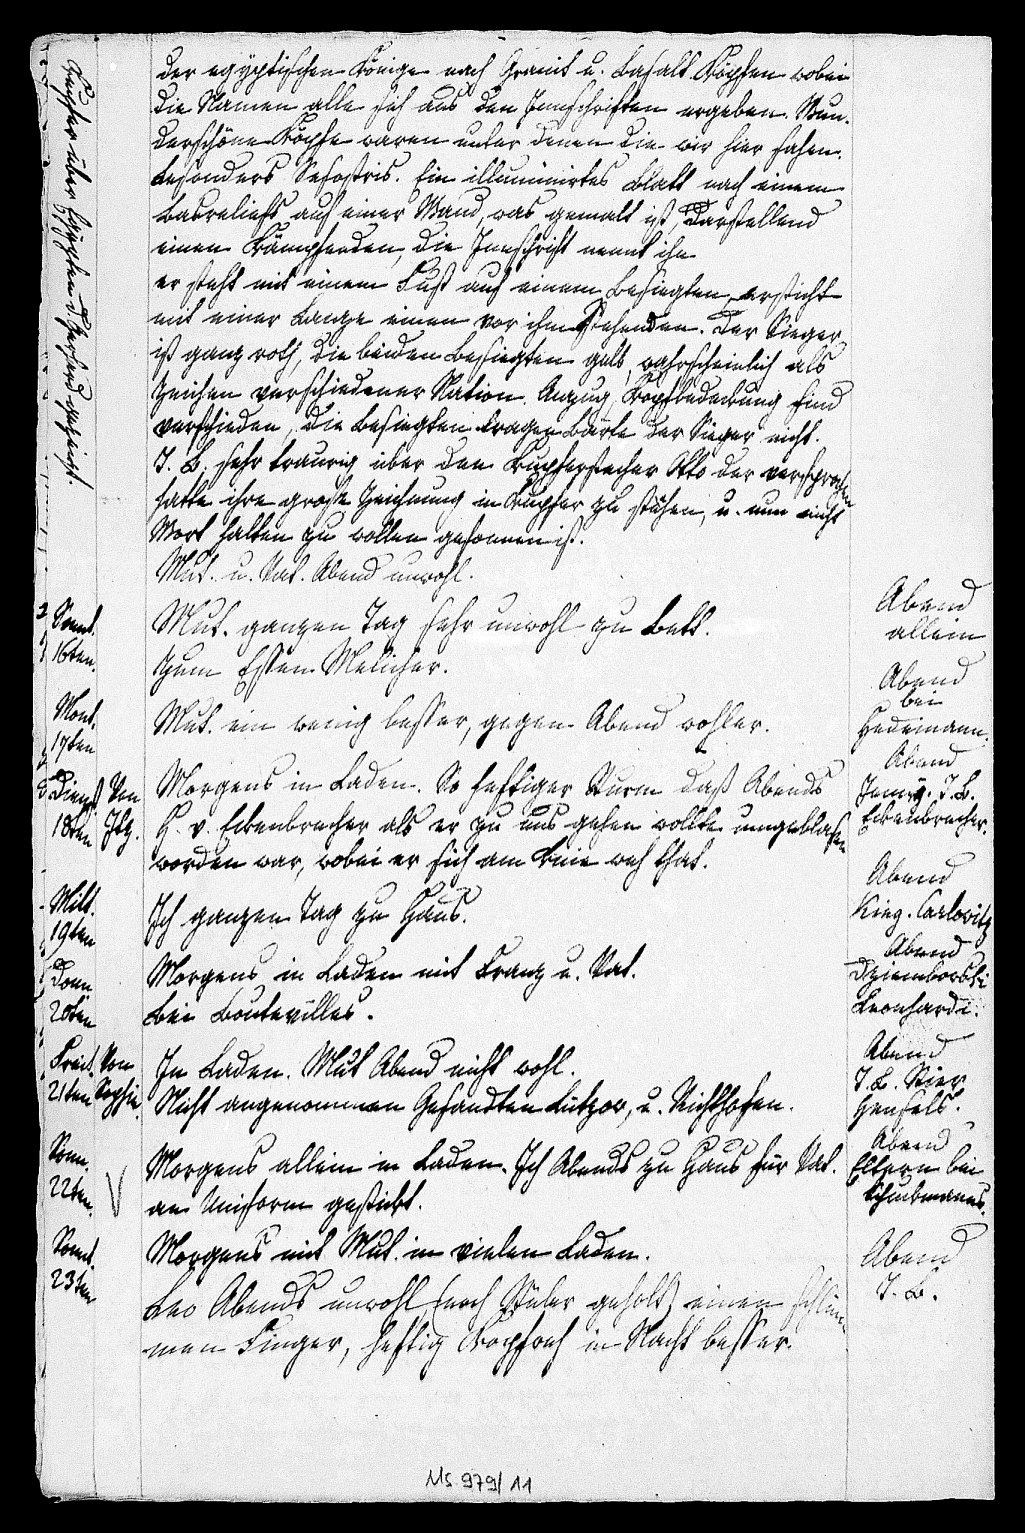 Kupfer über Egypten v. Gerhard gezeigt.
der egyptischen Könige nach Granit u. Basalt Köpfen wobei
die Namen alle sich aus den Innschriften ergeben. Wun-
derschöne Köpfe waren unter denen die wir hier sahen.
besonders Sesostris. Ein illuminirtes Blatt nach einem
Basreliefs auf einer Wand, was gemalt ist, Darstellend
einen Kämpfenden, die Innschrift nennt ihn
er steht mit einem Fuß auf einem Besiegten, ersticht
mit einer Lanze einen vor ihm stehenden. Der Sieger
ist ganz roth, die beiden Besiegten gelb, wahrscheinlich als
Zeichen verschiedener Nation. Anzug, Kopfbedeckung sind
verschieden, die Besiegten tragen Bärte der Sieger nicht.
J. B. sehr traurig über den Kupferstecher Otto der versprochen
hatte ihre große Zeichnung in Kupfer zu stechen, u. nun nicht
Wort halten zu wollen gesonnen ist.
Mut. u. Vat. Abend unwohl.
Sonnt.
16ten.
Mut. ganzen Tag sehr unwohl zu Bett.
Zum Essen Melicher.
Abend
allein
Mont.
17ten
Mut. ein wenig besser, gegen Abend wohler.
Abend
bei
Hedemann.
Dienst
18ten
Von
Itz.
Morgens in Laden. So heftiger Sturm daß Abends
H. v. Eckenbrecher als er zu uns gehen wollte umgeblasen
worden war, wobei er sich am Knie weh that.
Abend
Jenny. J. B.
Eckenbrecher.
Mitt.
19ten
Ich ganzen Tag zu Haus.
Abend
Carlowitz
Donn
20ten
Morgens in Laden mit Franz u. Vat.
bei Boutevilles.
Abend
Dziembowski
Leonhardi.
Freit.
21ten
Von
Sophie.
In Laden. Mut Abend nicht wohl.
Nicht angenommen Gesandten Lützow, u. Richthofen.
Abend
J. B. Stier
Hensels.
Sonn.
22ten.
Morgens allein in Laden. Ich Abends zu Haus für Vat.
an Uniform gestickt.
Abend
Eltern bei
Sonnt.
23ten
Morgens mit Mut. in vielen Laden.
Leo Abends unwohl (noch Stüler geholt) einen schlim-
men Finger, heftig Kopfweh in Nacht besser.
Abend
J. B.
Ms 979/11